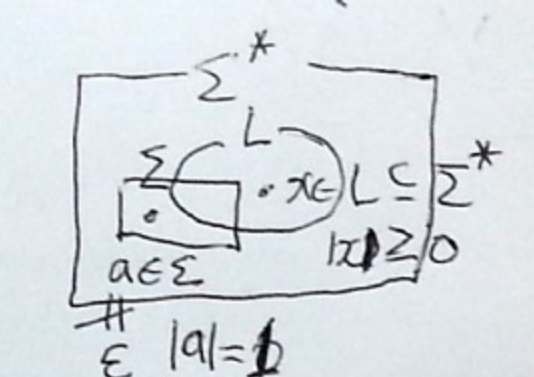 Σ*
L
Σ
x∈L⊆Σ*
|x|≥0
a∈Σ
∦
ε |a|=1